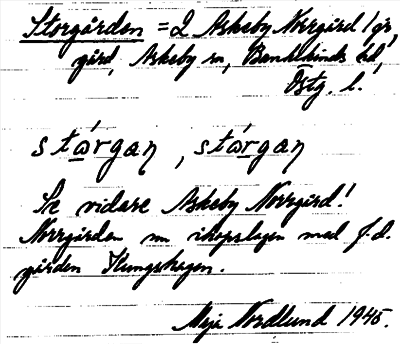 Storgården = 2 Askeby Norrgård 1 gr,
gård, Askeby sn, Bankekinds hd,
Östg. l.
stǫ́rgaɲ, stǫ́rgaɲ
Se vidare Askeby Norrgård!
Norrgården nu ihopslagen med f.d.
gården Kungshagen.
Maja Nordlund 1945.